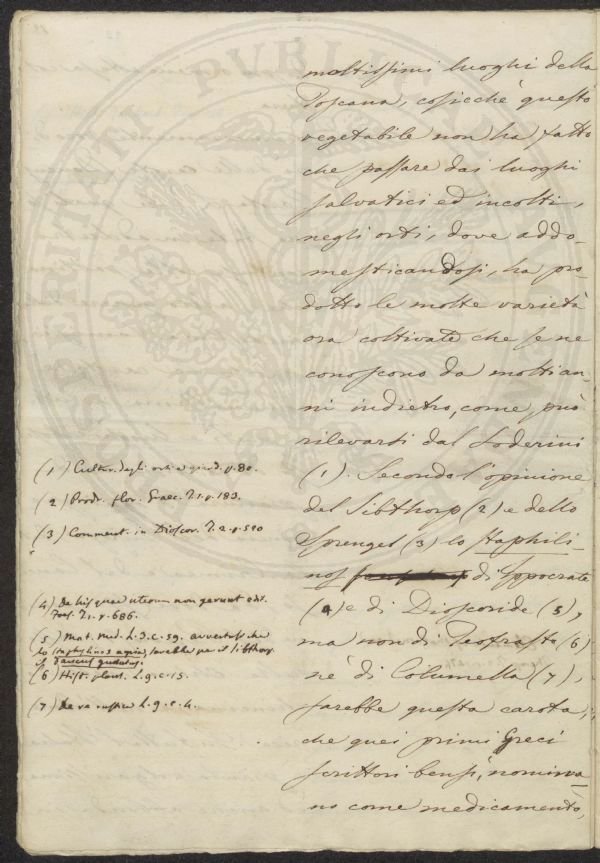 moltissimi luoghi della
Toscana, cosicchè questo
vegetabile non ha fatto
che passare dai luoghi
salvatici ed incolti,
negli orti, dove addo-
mesticandosi, ha pro-
dotto le molte varietà
ora coltivate che se ne
conoscono da molti an-
ni indietro, come può
rilevarsi dal Soderini
(1). Secondo l'opinione
del Sibthorp (2) e dello
Sprengel (3) lo staphili-
nos di Ippocrate
(4) e di Dioscoride (5),
ma non di Teofrasto (6)
nè di Columella (7),
sarebbe questa carota,
che quei primi Greci
scrittori bensì, nomina
no come medicamento,
(1) Cultur. degli orti e giard. p. 80.
(2) Prodr. flor. Graec. T. 1. p. 183.
(3) Comment. in Dioscor. T. 2. p. 510
(4) De his quae uterum non gerunt edit.
T. 1. p. 686.
(5) Mat. med. L. 3. c. 59. avverte che
lo staphylinos agrios, sarebbe per il Sibthorp
il daucus guttatus.
(6) Hist. plant. L. 9. c. 15.
(7) De re rustica L. 9. c. 4.
PVBLICAE
PROSPERITATI